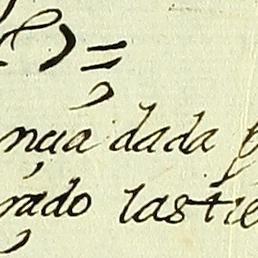 nçia dada
rado las tie